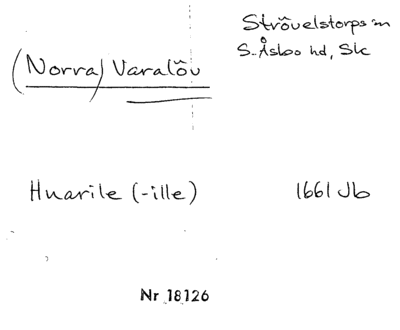 Strövelstorps sn
S. Åsbo hd, Sk
(Norra) Varalöv
Hnarile (-ille) 1661 Jb
Nr 18126